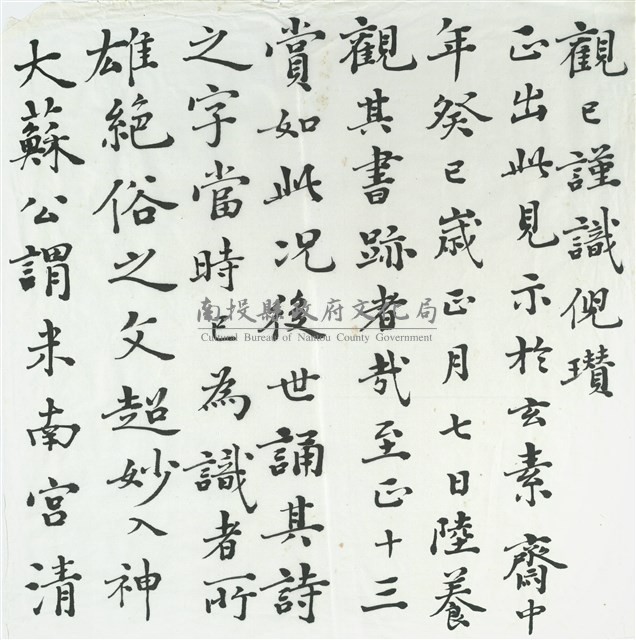 大蘇公謂米南宮清
雄絕俗之文超妙入神
之字當時已為識者所
賞如此况後世誦其詩
觀其書跡者哉至正十三
年癸巳歲正月七日陸養
正出此見示於玄素齋中
觀已謹識倪瓚
南投縣政府文化局
Cultural Bureau of Nantou County Government